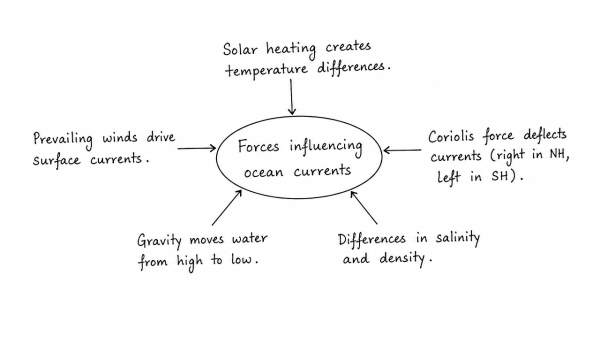 Solar heating creates
temperature differences.
Prevailing winds drive
surface currents.
Forces influencing
ocean currents
Coriolis force deflects
currents (right in NH,
Left in SH).
Gravity moves water
from high to low.
Differences in salinity
and density.